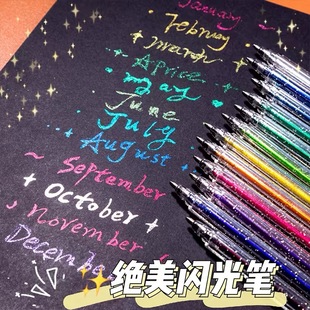 January
February
March
Aprice
may
June
July
August
~ September
+ October +
~ november
December
绝美闪光笔